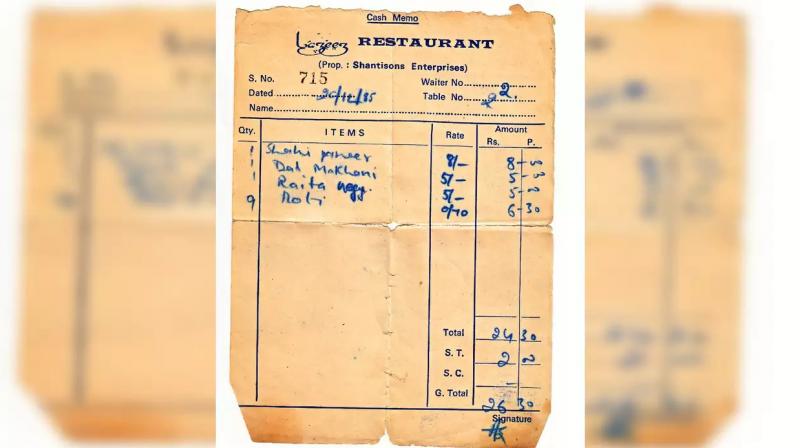 Cash Memo
Lazeez RESTAURANT
(Prop. : Shantisons Enterprises)
S. No. 715 Waiter No. 2
Dated 20/12/85 Table No. 2
Name
Qty. ITEMS Rate Amount
Rs. P.
1 Shahi paneer 8/- 8-00
1 Dal Makhani 5/- 5-00
1 Raita 5/- 5-00
9 Roti 0/70 6-30
Total 24 30
S. T. 2 00
S. C. -
G. Total 26 30
Signature